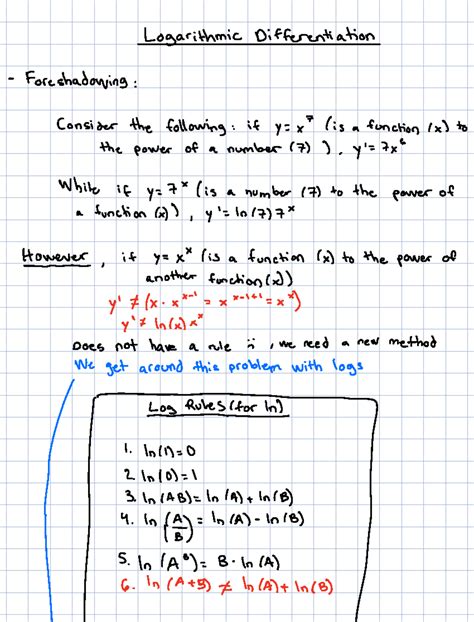 Logarithmic Differentiation
- Foreshadowing:
Consider the following: if y=x⁷ (is a function (x) to
the power of a number (7) ), y'=7x⁶
While if y=7ˣ (is a number (7) to the power of
a function (x)), y'=ln(7)7ˣ
However, if y=xˣ (is a function (x) to the power of
another function(x))
y' ≠ (x·x^(x-1) = x^(x-1+1) = xˣ)
y' ≠ ln(x)xˣ
Does not have a rule ∴, we need a new method
We get around this problem with logs
Log Rules (for ln)
1. ln(1)=0
2. ln(0)=1
3. ln(AB)=ln(A)+ln(B)
4. ln(A/B)=ln(A)-ln(B)
5. ln(A^B)=B·ln(A)
6. ln(A+B) ≠ ln(A)+ln(B)